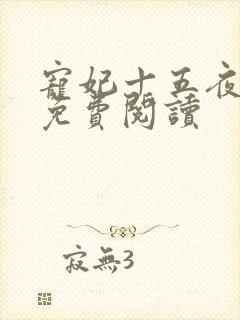 寵妃十五夜
免費閱讀
寂無3